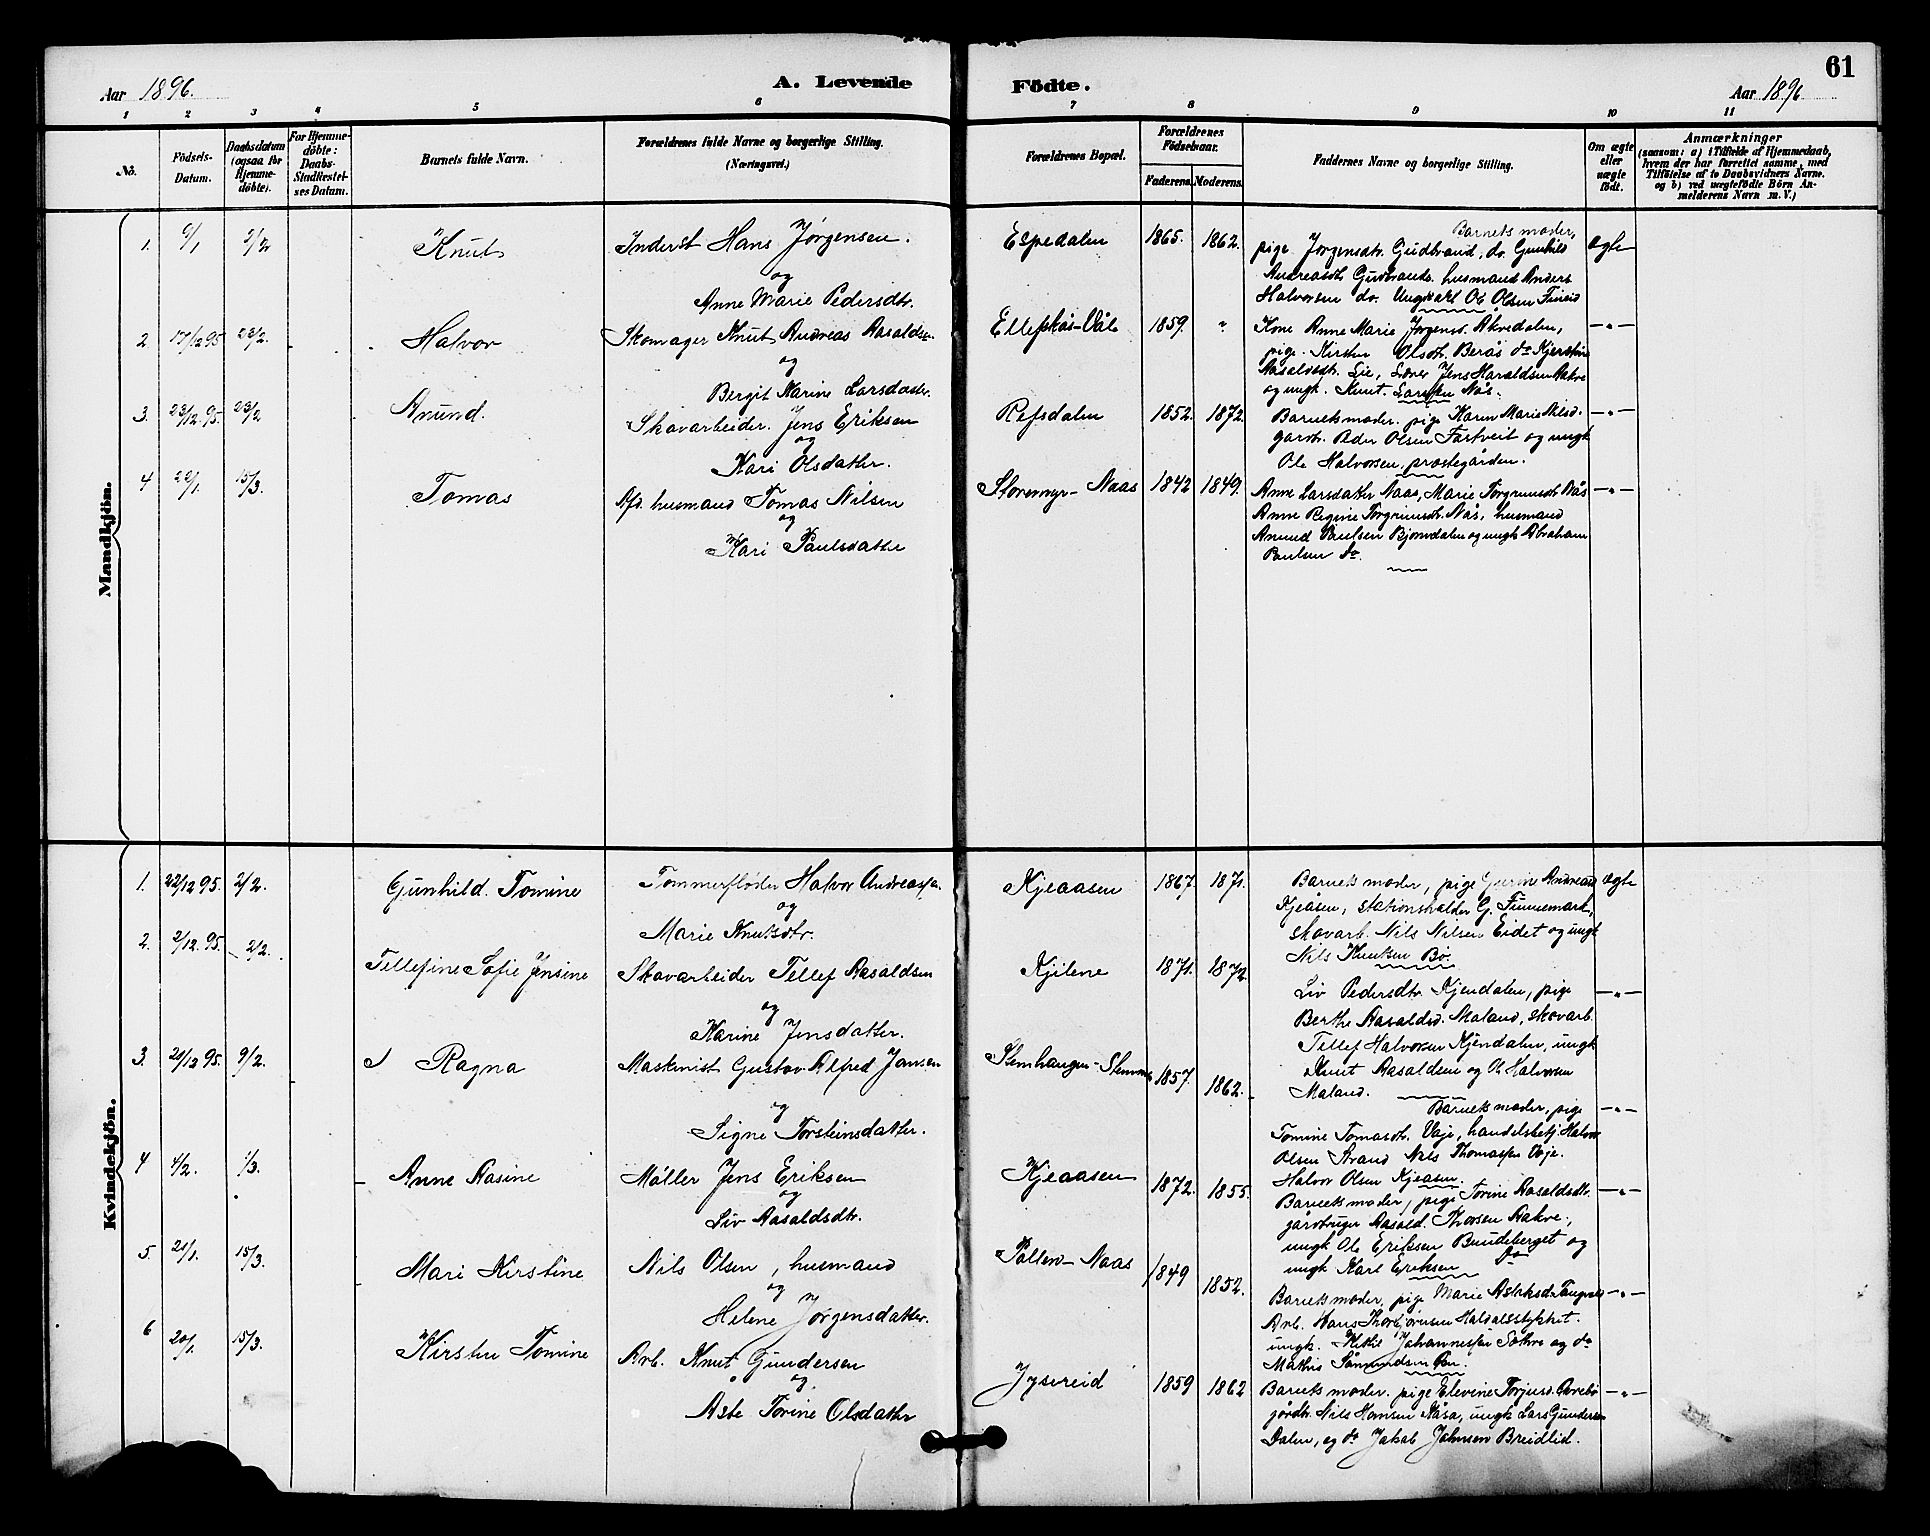 61
Aar 1896. A. Levende Födte. Aar 1896
1 2 3 4 5 6 7 8 9 10 11
No. Födsels-Datum. Daabsdatum (ogsaa for Hjemme-döbte). For Hjemme-döbte: Daabs-Stadfæstel-ses Datum. Barnets fulde Navn. Forældrenes fulde Navne og borgerlige Stilling. (Næringsvei.) Forældrenes Bopæl. Forældrenes Födselsaar. Faderens. Moderens. Faddernes Navne og borgerlige Stilling. Om ægte eller uægte födt. Anmærkninger (saasom: a) i Tilfælde af Hjemmedaab, hvem der har forrettet samme, med Tilföielse af to Daabsvidners Navne, og b) ved uægtefödte Börn An-melderens Navn m. V.)
Mandkjön.
1. 2/2 Knut Inderst Hans Jørgensen. Espedalen 1865. 1862. Barnets moder, ægte
og
Anne Marie Pedersdtr.
pige Jørgensdtr. Gudbrand, do. Gunhild
husmand Anders
Halvorsen do. Ungkarl Ol. Olsen Fineid
2 17/12 95 23/2. Halvor Skomager Knut Andreas Aasaldsen. 1859. " —"—
og
Bergit Karine Larsdatter.
Kone Anne Marie Jørgensd. Akvedalen,
pige. Kirsten Olsdtr. Berås do Kjerstine
Aasaldsdtr. Lie, Lærer Jens Haraldsen Aakre
og ungk. Knut Larsen Nås.
3. 23/12.95. 23/2 Anund. Skovarbeider. Jens Eriksen Refsdalen 1852. 1872. —"—
og
Kari Olsdatter.
Barnets moder. pige Karen Marie Nilsd.
gårdbr. Peder Olsen Fastveit og ungk
Ole Halvorsen, præstegården.
4 22/1. 15/3. Tomas Afs. husmand Tomas Nilsen Storemyr-Naas 1842 1849. —"—
og
Kari Paulsdatter
Anne Larsdatter Naas, Marie Torgrimsdt. Nås
Anne Regine Torgrimsdt. Nås, husmand
Anund Paulsen Bjorndalen og ungk Abraham
Paulsen do.
Kvindekjön.
1. 22/12 95. 2/2. Gunhild Tomine Tømmerfløder Halvor Andreassen. Kjeaasen 1867. 1871. ægte
og
Marie Knutsdtr.
Barnets moder, pige Gurine Andreasd
Kjeåsen, stationsholder G. Finnemark,
skovarb. Nils Nilsen Eidet og ungk
Nils Knutsen Bø.
2. 2/12.95. 2/2. Tellefine Sofie Jensine Skovarbeider Tellef Aasaldsen Kjilene 1871. 1872. —"—
og
Karine Jensdatter.
Liv Pedersdtr. Kjendalen, pige
Berthe Aasaldsd. Maland, skovarb.
Tellef Halvorsen Kjendalen, ungk
Knut Aasaldsen og Ol. Halvorsen
Maland.
3. 20/12 95. 9/2. Ragna Maskinist Gustav Alfred Jansen 1857. 1862. —"—
og
Signe Torsteinsdatter.
Barnets moder, pige
Tomine Tomasdtr. Vaje, handelsbetj. Halvor
Olsen Strand Nils Thomassen Vaje.
Halvor Olsen Kjeasen.
4 4/2. 1/3. Anne Aasine Møller Jens Eriksen Kjeaasen 1872. 1855. —"—
og
Liv Aasaldsdtr.
Barnets moder, pige Torine Aasaldsdtr.
gårdbruger Aasald. Thorsen Aakre,
ungk Ole Eriksen Bundeberget og
ungk Karl Eriksen do
5. 20/1. 15/3. Mari Kirstine Nils Olsen, husmand Pollen-Naas 1849 1852. —"—
og
Helene Jørgensdatter.
Barnets moder, pige Marie Aslaksd. Tangnes
Arb. Hans Thorbjørnsen Haldalsstykket.
ungk. Johannessen og do
Mathis Sømundsen
6 20/1. 15/3. Kirsten Tomine Arb. Knut Gundersen Jysereid 1859 1862 —"—
og
Aste Torine Olsdatter
Barnets moder. pige Elevine Torjusd.
gårdbr. Nils Hansen Nåsa, ungk Lars Gundersen
Dalen, og do Jakob Johnsen Breidlid.